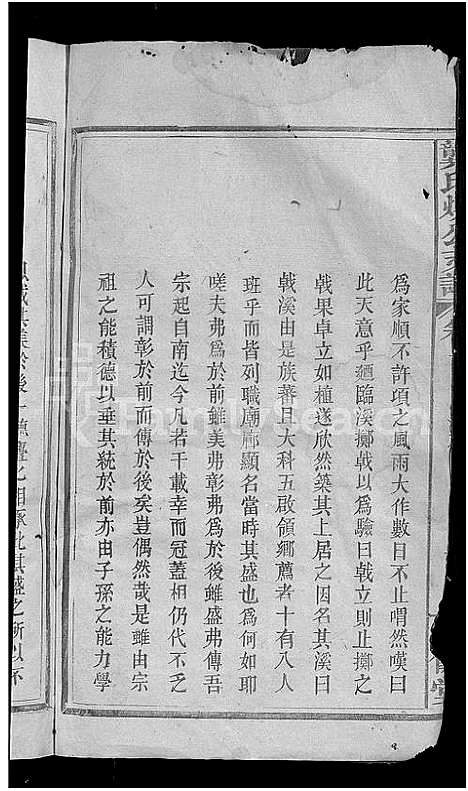 龔氏
為家順不許項之風雨大作數日不止喟然嘆曰
此天意乎廼臨溪擲戟以為驗曰戟立則止擲之
戟果卓立如種遂欣然築其上居之因名其溪曰
戟溪由是族蕃且大科五啟領鄉薦者十有八人
班乎而皆列職廟廊顯名當時其盛也為何如耶
嗟夫弗為於前雖美弗彰弗為於後雖盛弗傳吾
宗起自南迄今凡若干載幸而冠蓋相仍代不乏
人可謂彰於前而傳於後矣豈偶然哉是雖由宗
祖之能積德以垂其統於前亦由子孫之能力學
其美於後一 相承此其盛之所以不
FamilySearch